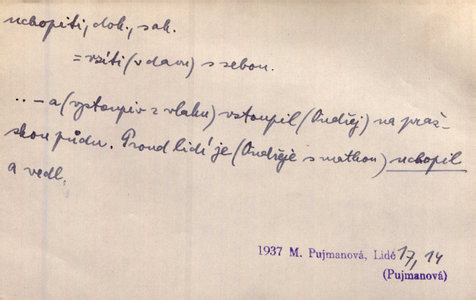 uchopiti, dok., sak.
= vzíti (v davu) s sebou.
.. – a (vystoupiv z vlaku) vstoupil (Ondřej) na praž-
skou půdu. Proud lidí je (Ondřeje s matkou) uchopil
a vedl.
1937 M. Pujmanová, Lidé 17, 14
(Pujmanová)